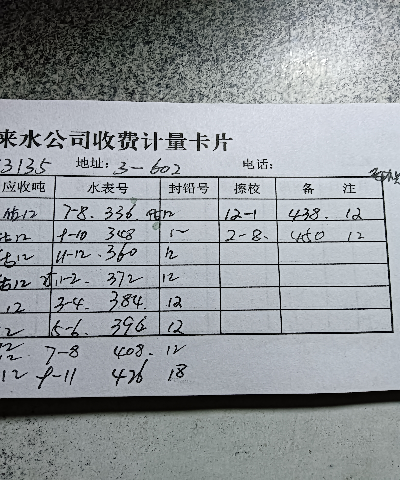 来水公司收费计量卡片
3135 地址: 3-602 电话:
应收吨 水表号 封铅号 擦校 备 注
12 7-8. 336. 12 12-1 438. 12
12 9-10 348 2-8. 450 12
12 11-12. 360 12
12 1-2. 372 12
12 3-4. 384. 12
12 5-6. 396 12
12 7-8 408. 12
12 9-11 426 18